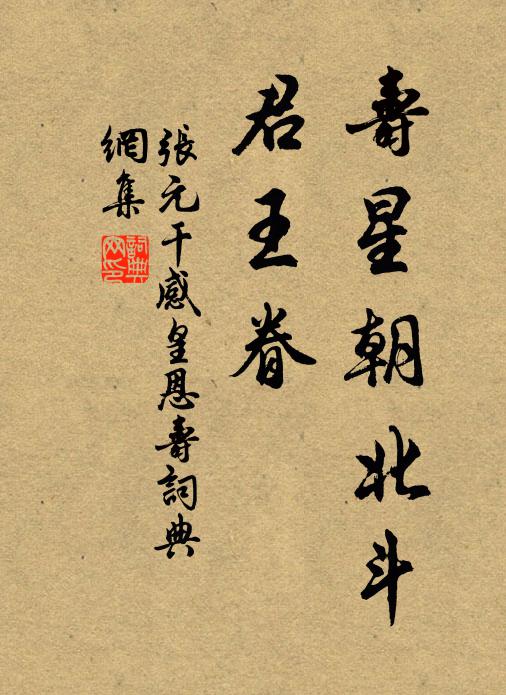 壽星朝北斗
君王眷
張元干感皇恩壽詞典
網集
詞典網印